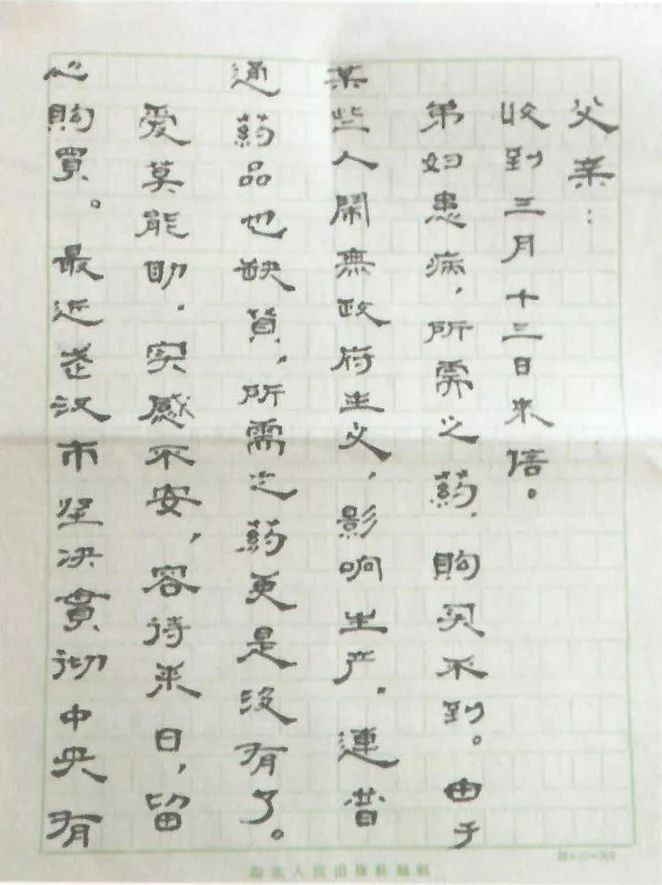 父亲：
收到三月十三日来信。
弟妇患病，所需之药，购买不到。由于
某些人闹無政府主义，影响生产，連普
通药品也缺貨，所需之药更是没有了。
爱莫能助，实感不安，容待来日，留
心購買。最近武汉市坚决贯彻中央有
湖北人民出版社稿紙